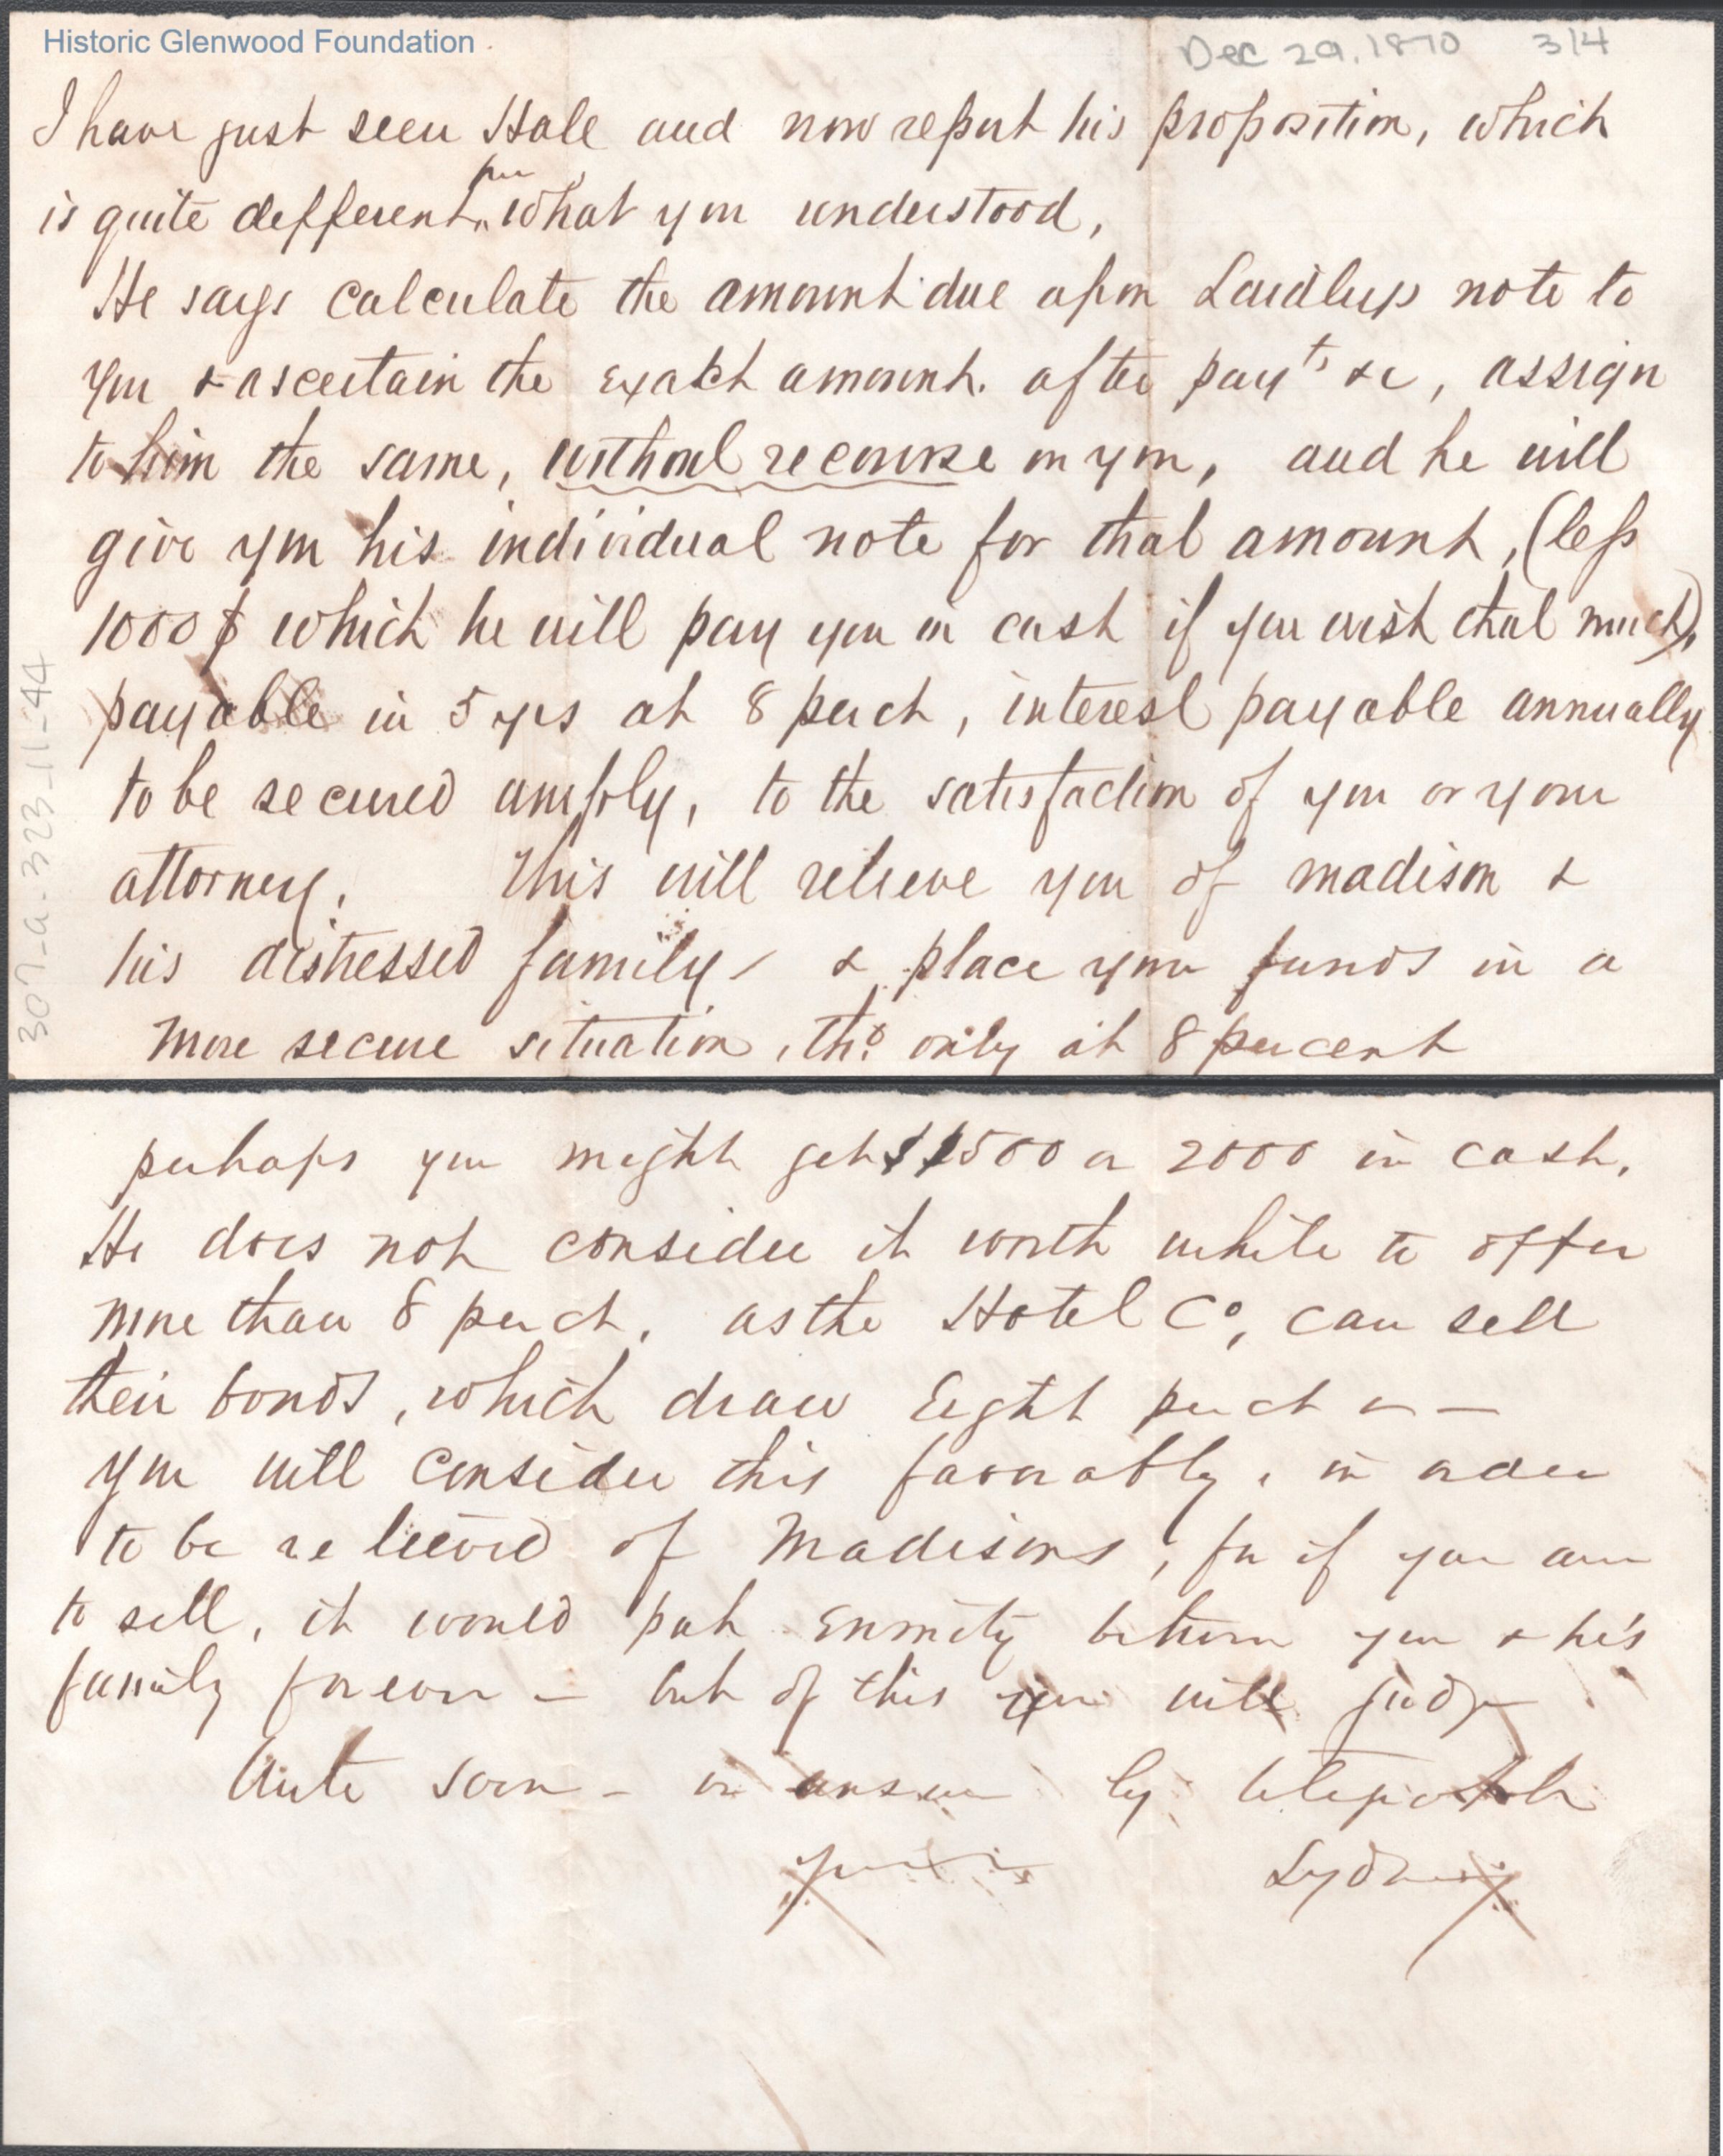 Historic Glenwood Foundation
Dec 29, 1870 314
I have just seen Hale and now report his proposition, which
is quite defferent from what you understood,
He says calculate the amount due upon Laidleys note to
you & ascertain the exact amount. after payts &c, assign
to him the same, without recourse on you, and he will
give you his individual note for that amount, (less
1000$ which he will pay you in cash if you wish that much),
payable in 5 yrs at 8 per ct, interest payable annually
to be secured amply, to the satisfaction of you or your
attorney. This will relieve you of madison &
his distressed family & place your funds in a
more secure situation, tho only at 8 per cent
307-a-323-11-44
perhaps you might get $1500 or 2000 in cash.
He does not consider it worth while to offer
more than 8 per ct. as the Hotel Co, can sell
their bonds, which draw Eight per ct —
you will consider this favorably, in order
to be relieved of Madisons, for if you are
to sell, it would put enmity between you & his
family forever — but of this you will judge
Write soon — or answer by telegraph
Sydney